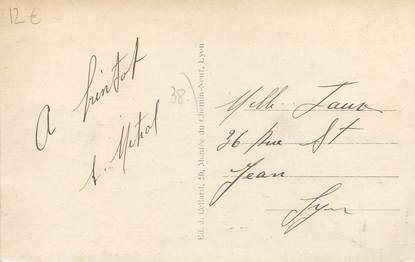 12 €
A bientot
A. Metral
38.)
Ed. J. Cellard, 20, Montée du Chemin-Neuf, Lyon
Melle
36 Rue St
Jean
Lyon